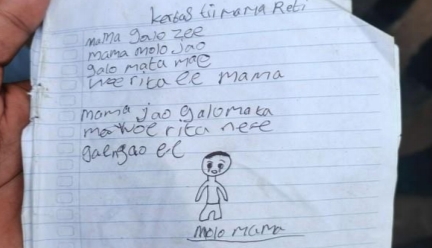 kertas tii mama Reti
mama galo zee
mama molo Jao
galo mata mae
woe rita ee mama
mama jao galo mata
mae woe rita nere
gaengao ee
molo mama